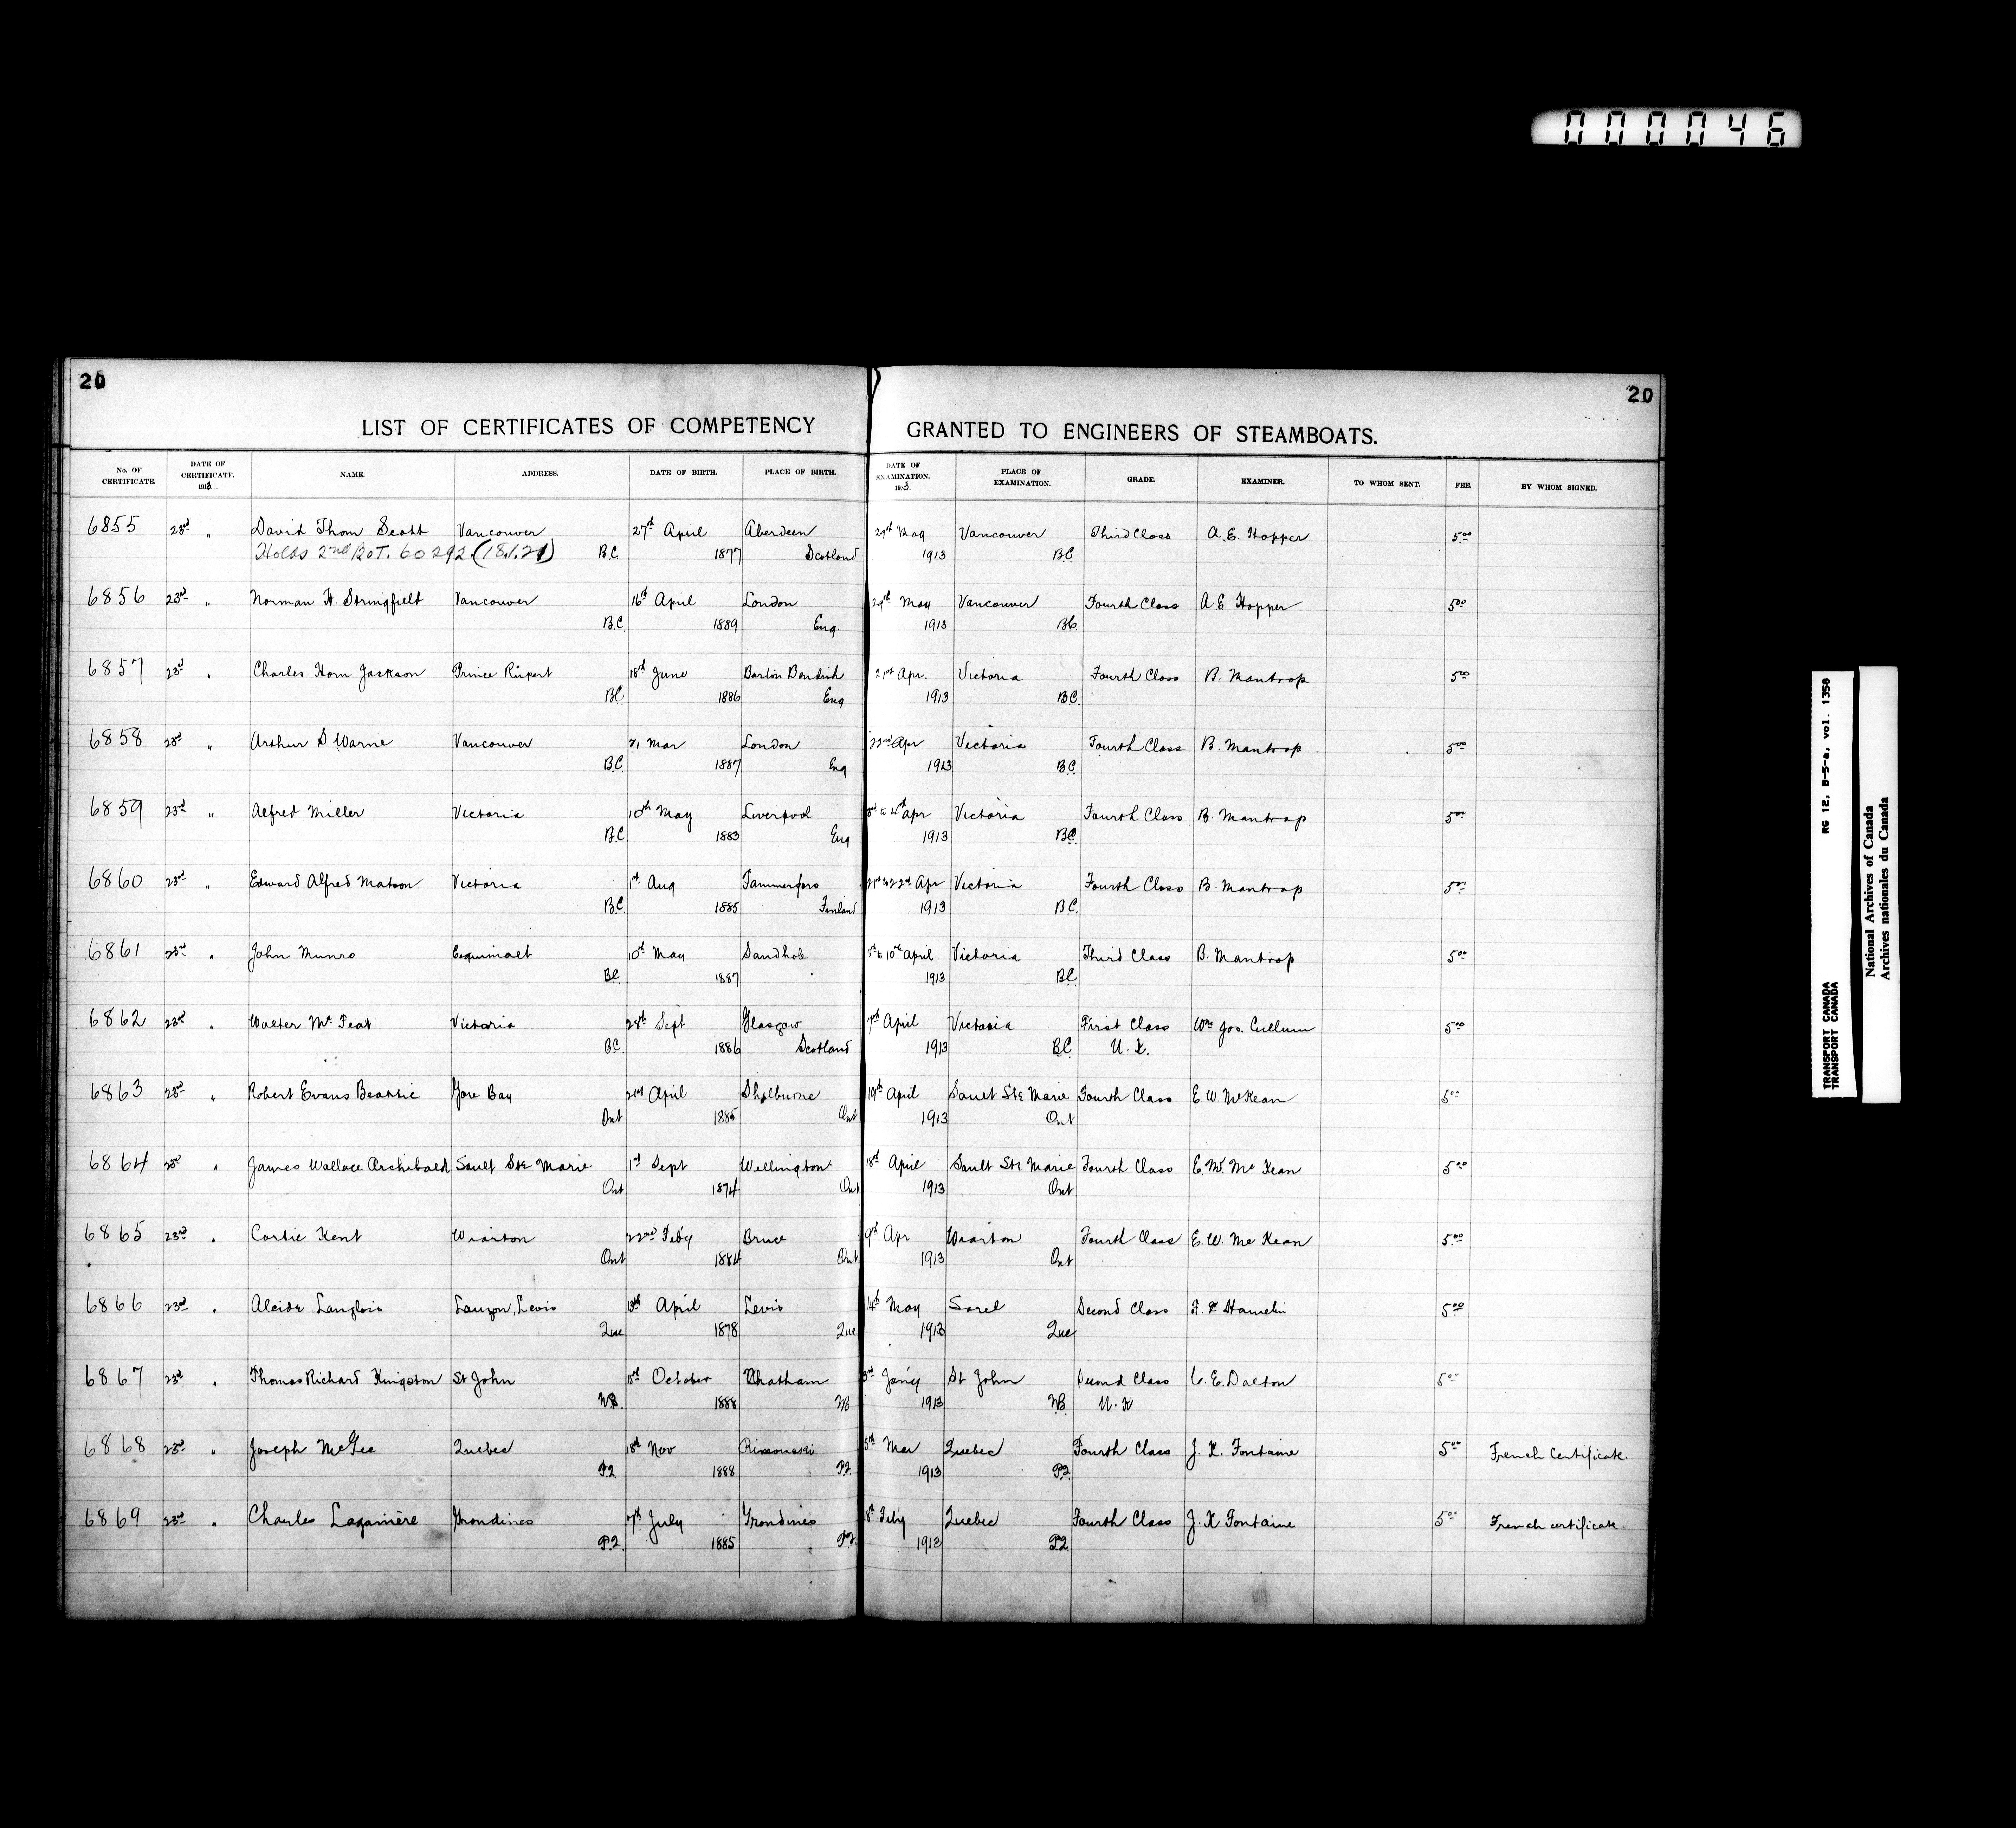 000046
20
20
LIST OF CERTIFICATES OF COMPETENCY GRANTED TO ENGINEERS OF STEAMBOATS.
No. OF CERTIFICATE. DATE OF CERTIFICATE. 1913. NAME. ADDRESS. DATE OF BIRTH. PLACE OF BIRTH. DATE OF EXAMINATION. 1913. PLACE OF EXAMINATION. GRADE. EXAMINER. TO WHOM SENT. FEE. BY WHOM SIGNED.
6855 23rd " David Thom Scott Vancouver 27th April Aberdeen 29th May Vancouver Third Class A. E. Hopper 5.00
Holds 2nd BoT. 60292 (18.1.21) B.C. 1877 Scotland 1913 B.C.
6856 23rd " Norman H. Stringfield Vancouver 16th April London 29th May Vancouver Fourth Class A. E. Hopper 5.00
B.C. 1889 Eng. 1913 B.C.
6857 23rd " Charles Horn Jackson Prince Rupert 18th June Barton Bendish 21st Apr. Victoria Fourth Class B. Mantrop 5.00
B.C. 1886 Eng 1913 B.C.
6858 23rd " Arthur S. Warne Vancouver 21 Mar London 22nd Apr Victoria Fourth Class B. Mantrop 5.00
B.C. 1887 Eng 1913 B.C.
6859 23rd " Alfred Miller Victoria 10th May Liverpool 3rd to 4th Apr Victoria Fourth Class B. Mantrop 5.00
B.C. 1883 Eng 1913 B.C.
6860 23rd " Edward Alfred Matson Victoria 1st Aug Tammerfors 21st to 22nd Apr Victoria Fourth Class B. Mantrop 5.00
B.C. 1885 Finland 1913 B.C.
6861 23rd " John Munro Esquimalt 10th May Sandhole to 10th April Victoria Third Class B. Mantrop 5.00
B.C. 1887 1913 B.C.
6862 23rd " Walter Mc Feat Victoria 28th Sept Glasgow 7th April Victoria First Class Wm Jos. Cullum 5.00
B.C. 1886 Scotland 1913 B.C. U. K.
6863 23rd " Robert Evans Beattie Gore Bay 21st April Shelburne 19th April Sault Ste Marie Fourth Class E. W. McKean 5.00
Ont 1885 Ont 1913 Ont
6864 23rd " James Wallace Archibald Sault Ste Marie 1st Sept Wellington 18th April Sault Ste Marie Fourth Class E. W. Mc Kean 5.00
Ont 1874 Ont 1913 Ont
6865 23rd " Cortie Kent Wiarton 22nd Feby Bruce 9th Apr Wiarton Fourth Class E. W. Mc Kean 5.00
Ont 1884 Ont 1913 Ont
6866 23rd " Alcide Langlois Lauzon, Levis 13th April Levis 14th May Sorel Second Class Hamelin 5.00
Que 1878 Que 1913 Que
6867 23rd " Thomas Richard Kingston St John 18th October Chatham 3rd Jan'y St John Second Class C. E. Dalton 5.00
N.B. 1888 N.B 1913 N.B. U. K
6868 23rd " Joseph McGee Quebec 18th Nov Rimouski 5th Mar Quebec Fourth Class J. K. Fontaine 5.00 French Certificate.
P.Q 1888 P.Q. 1913 P.Q.
6869 23rd " Charles Laganière Grondines 7th July Grondines 8th Feby Quebec Fourth Class J. K Fontaine 5.00 French certificate.
P.Q. 1885 P.Q. 1913 P.Q.
TRANSPORT CANADA RG 12, B-5-a, vol. 1358
TRANSPORT CANADA
National Archives of Canada
Archives nationales du Canada